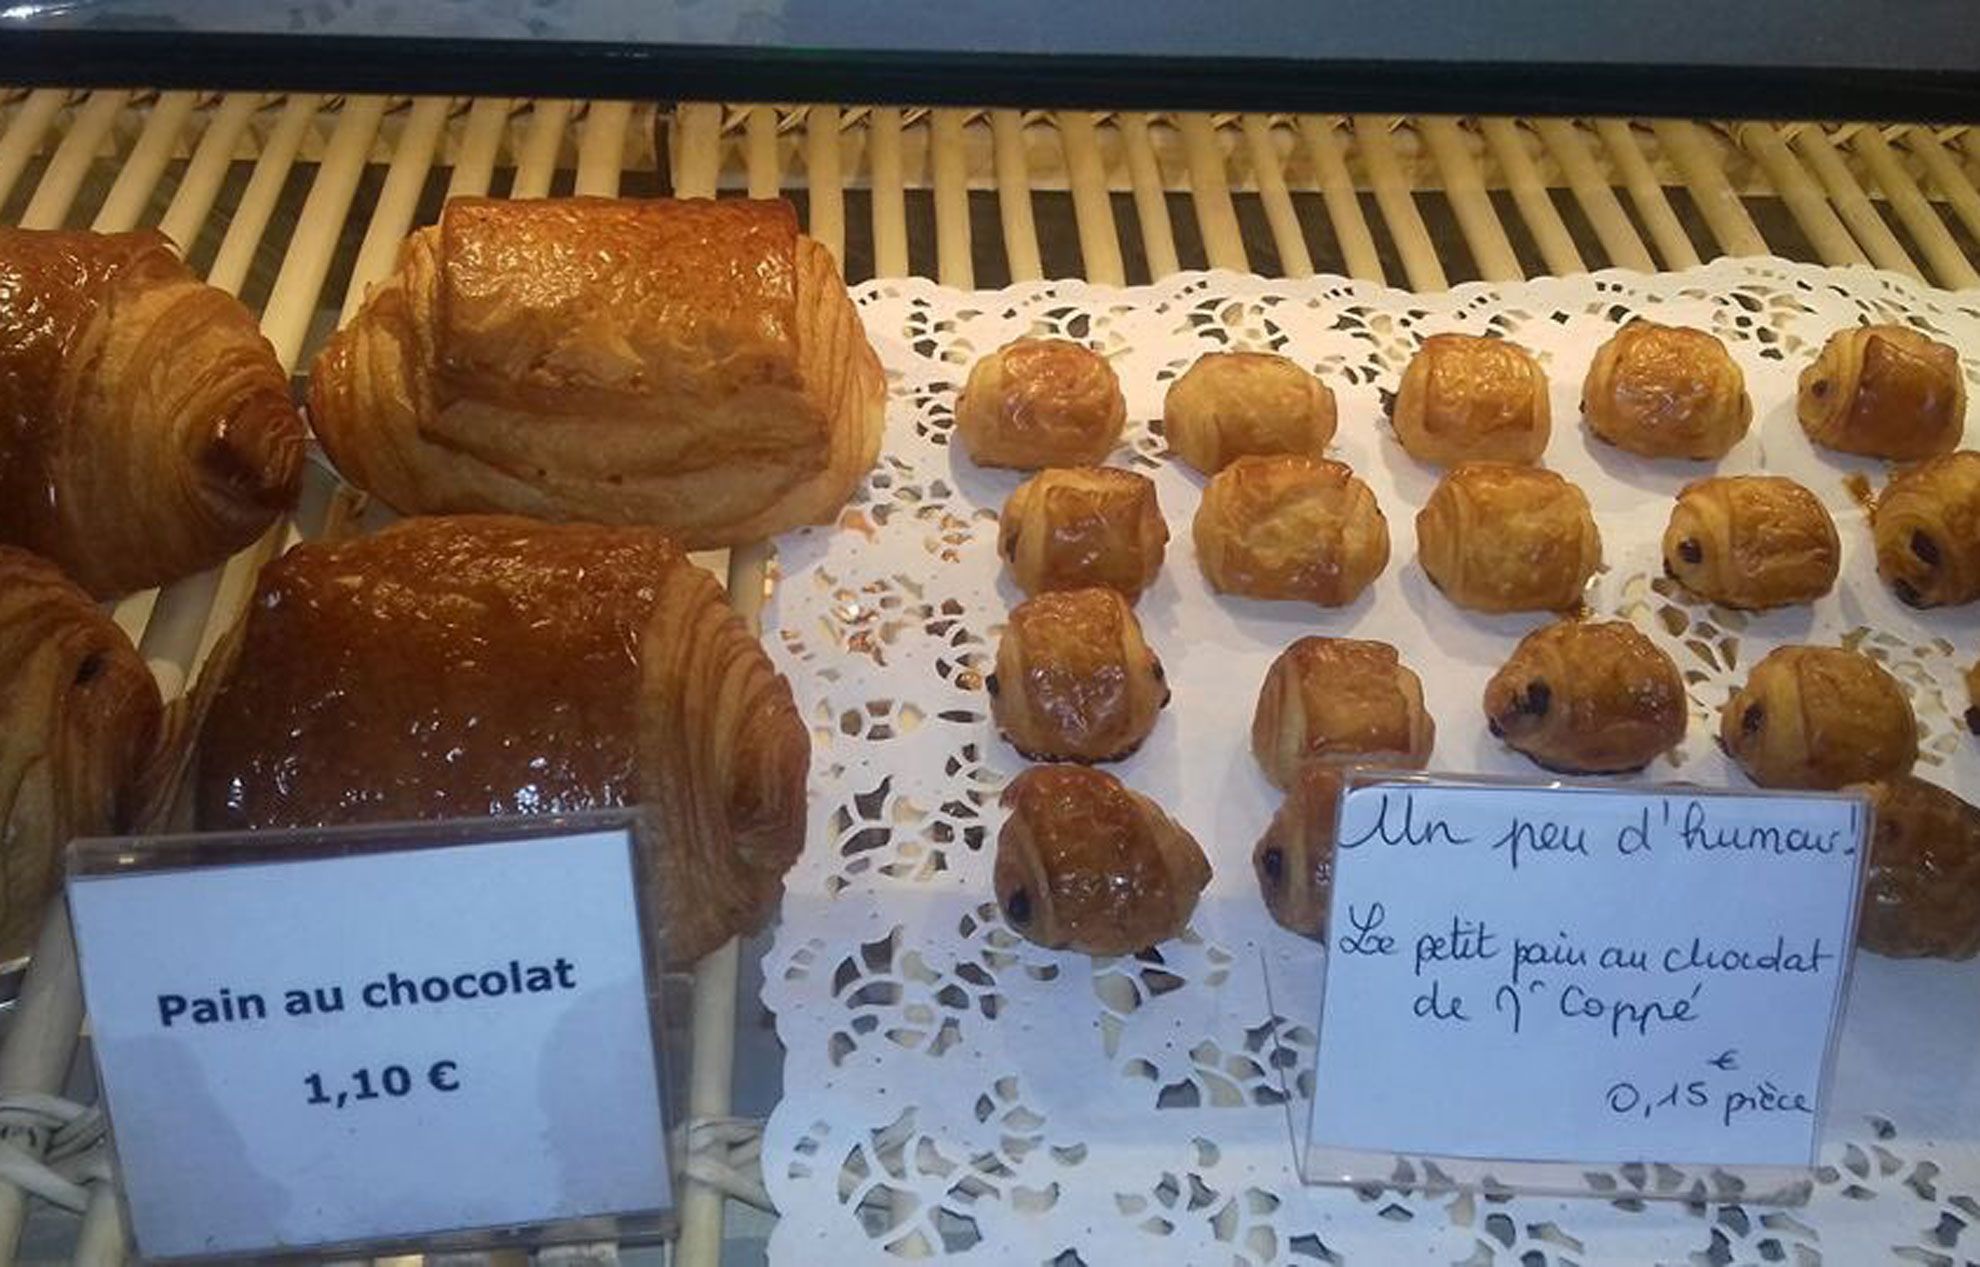 Pain au chocolat
1,10 €
Un peu d'humour!
Le petit pain au chocolat
de Mr Coppé
€
0,15 pièce